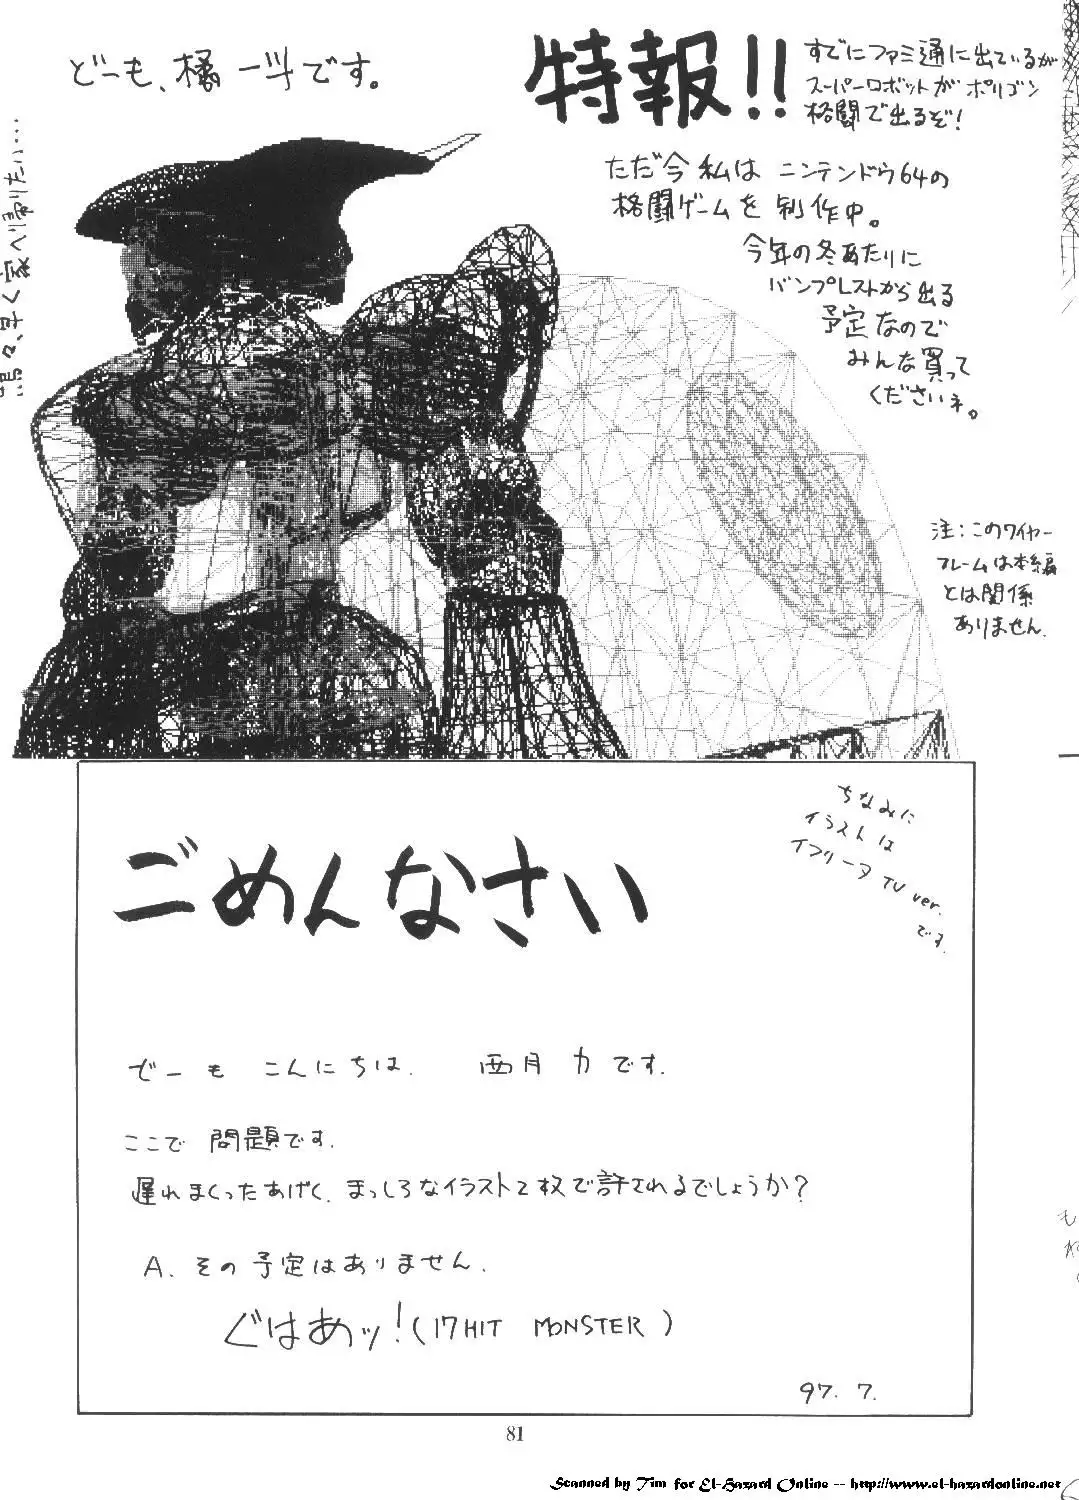 どーも、橘 一斗です。
特報!!
すでにファミ通に出ているが
スーパーロボットが ポリゴン
格闘で出るぞ!
ただ今 私は ニンテンドウ64の
格闘ゲームを 制作中。
今年の冬あたりに
バンプレストから 出る
予定なので
みんな買って
くださいネ。
注:このワイヤー
フレームは本編
とは関係
ありません。
ちなみに
イラストは
イフリーヌ TV ver.
です。
ごめんなさい
どーも こんにちは. 西月 力です.
ここで 問題です.
遅れまくったあげく、まっしろなイラスト2枚で許されるでしょうか?
A. その予定はありません.
ぐはあッ!(17HIT MONSTER)
97. 7.
81
Scanned by Tim for El-Hazard Online -- http://www.el-hazardonline.net